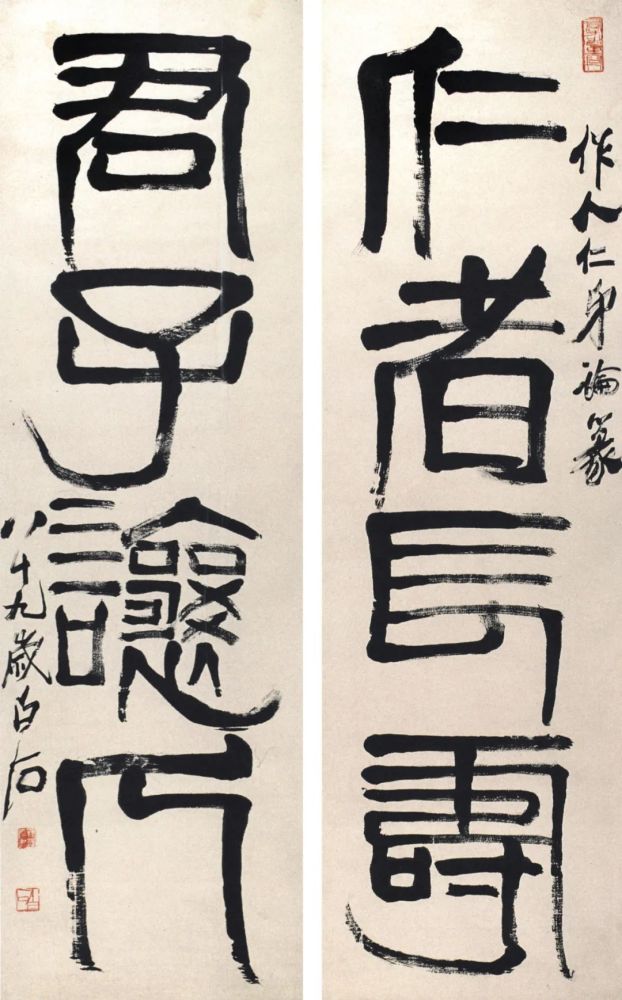 作人仁弟論篆
仁者長壽
君子讓
八十九歲白石